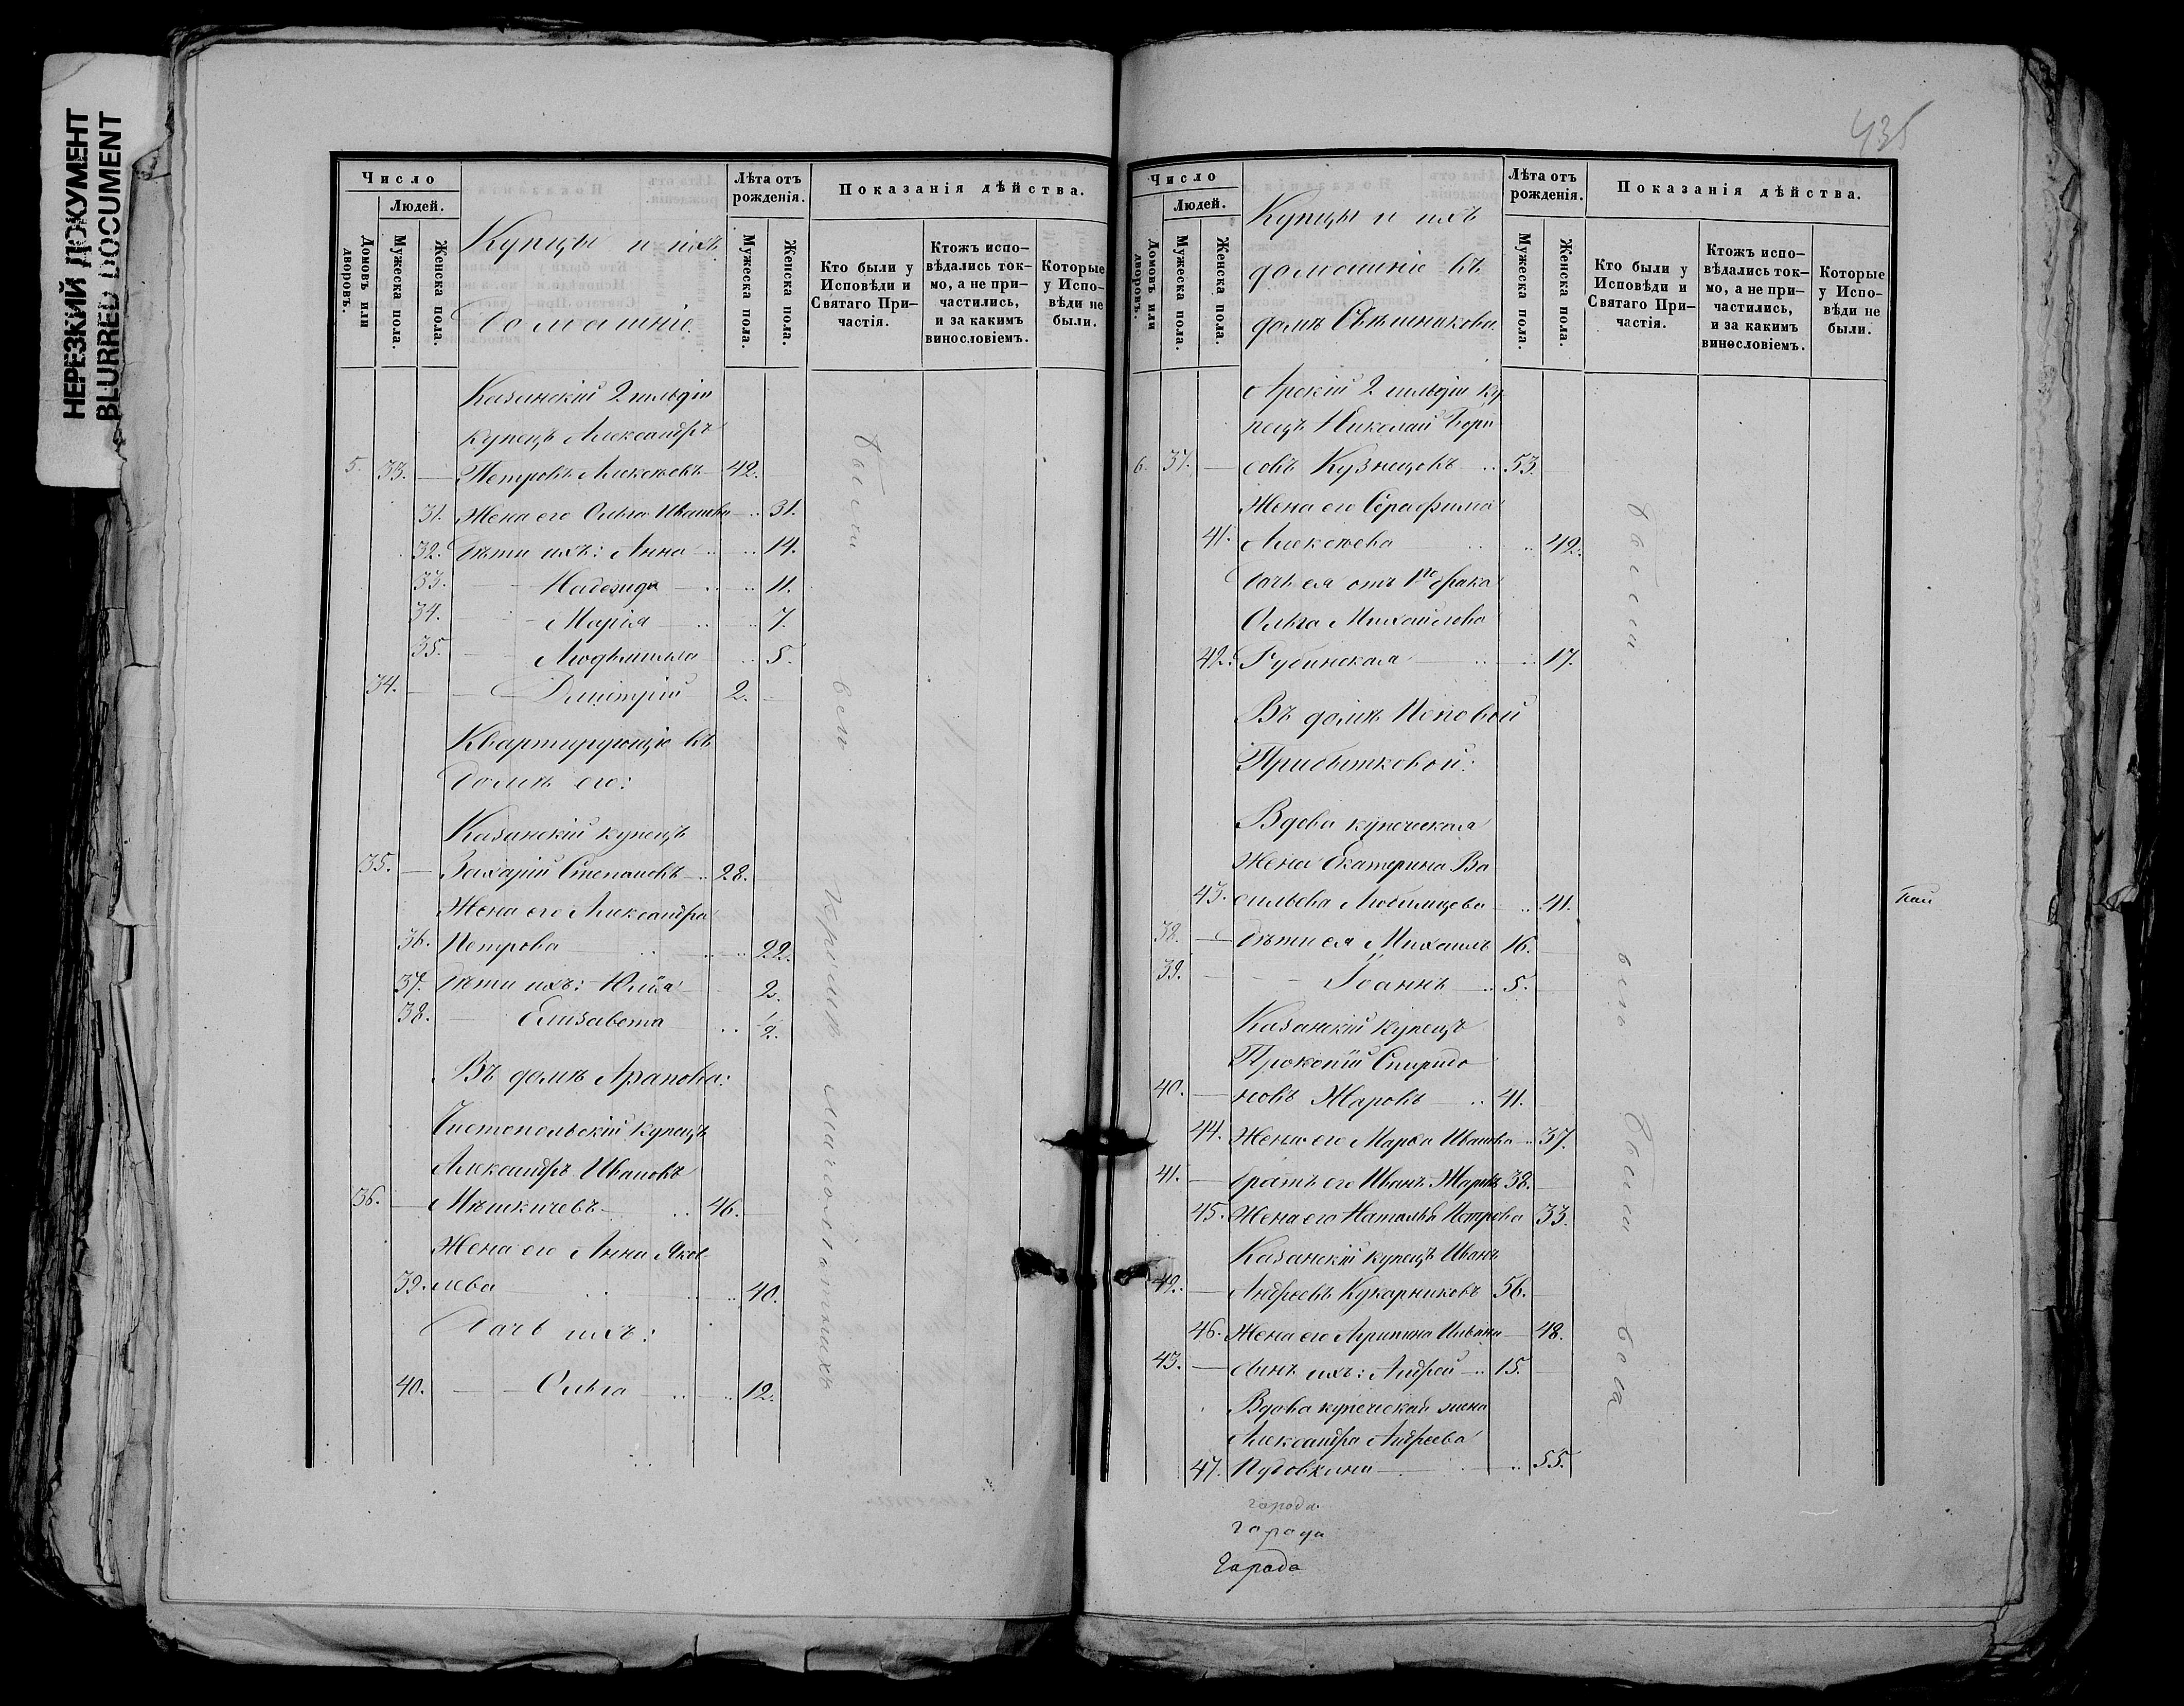 НЕРЕЗКИЙ ДОКУМЕНТ
BLURRED DOCUMENT
Число
Людей.
Домовъ или дворовъ.
Мужеска пола.
Женска пола.
Купцы и ихъ
домашніе.
Лѣта отъ рожденія.
Мужеска пола.
Женска пола.
Показанія дѣйства.
Кто были у Исповѣди и Святаго Причастія.
Ктожъ исповѣдались токмо, а не причастились, и за какимъ винословіемъ.
Которые у Исповѣди не были.
Казанскій 2 гильдіи
купецъ Александръ
5. 33. Петровъ Алексѣевъ 42.
31. Жена его Ольга Иванова 31.
32. Дѣти ихъ: Анна 14.
33. Надежда 11.
34. Марія 7.
35. Людмила 5.
34. Дмитрій 2.
Квартирующіе въ
домѣ его:
Казанскій купецъ
35. Захарій Степановъ 28.
Жена его Александра
36. Петрова 22.
37. Дѣти ихъ: Юлія 2.
38. Елизавета 1/2.
Въ домѣ Арапова:
Чистопольскій купецъ
Александръ Ивановъ
36. Мѣшкичевъ 46.
Жена его Анна Яков-
39. лева 40.
Дочь ихъ:
40. Ольга 12.
были
вси
кромѣ малолѣтнихъ
435
Число
Людей.
Домовъ или дворовъ.
Мужеска пола.
Женска пола.
Купцы и ихъ
домашніе въ
домѣ Свѣшникова
Лѣта отъ рожденія.
Мужеска пола.
Женска пола.
Показанія дѣйства.
Кто были у Исповѣди и Святаго Причастія.
Ктожъ исповѣдались токмо, а не причастились, и за какимъ винословіемъ.
Которые у Исповѣди не были.
Арскій 2 гильдіи ку
пецъ Николай Бори
6. 37. совъ Кузнецовъ 53.
Жена его Серафима
41. Алексѣева 42.
Дочь ея отъ 1го брака
Ольга Михайлова
42. Рубинская 17.
Въ домѣ Поповой
Прибытковой:
Вдова купеческая
жена Екатерина Ва
43. сильева Любимцева 41.
38. Дѣти ея Михаилъ 16.
39. Іоаннъ 5.
Казанскій купецъ
Прокопій Спиридо
40. новъ Жаровъ 41.
44. Жена его Марѳа Иванова 37.
41. Братъ его Иванъ Жаровъ 38.
45. Жена его Наталья Петрова 33.
Казанскій купецъ Иванъ
42. Андреевъ Кукарниковъ 56.
46. Жена его Агрипина Ильина 48.
43. Сынъ ихъ: Андрей 15.
Вдова купеческая жена
Александра Андреева
47. Пуговкина 55.
были
вси
были
города.
города
Города